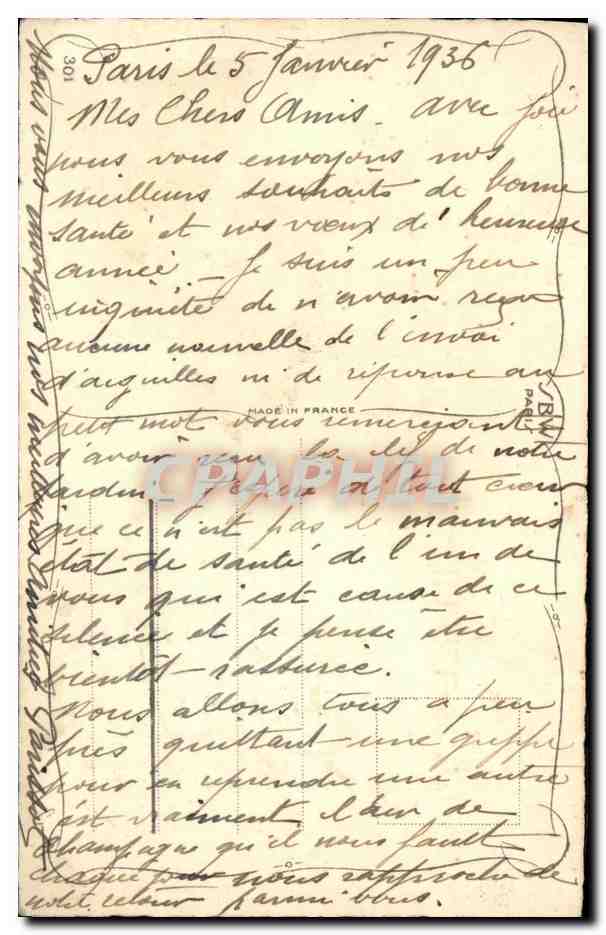 301
Paris le 5 Janvier 1936
Mes Chers Amis. avec joie
nous vous envoyons nos
meilleurs souhaits de bonne
santé et nos vœux de' heureuse
année. Je suis un peu
inquiète de n'avoir reçu
aucune nouvelle de l'envoi
d'aiguilles ni de réponse au
MADE IN FRANCE
SBW
PARIS
petit mot vous remerciant
d'avoir reçu la clé de notre
jardin J'espère de tout cœur
que ce n'est pas le mauvais
état de santé de l'un de
vous qui est cause de ce
silence et je pense être
bientôt rassurée.
Nous allons tous a peu
près quittant une grippe
pour en reprendre une autre
c'est vraiment l'air de
Champagne qu'il nous fault
chaque jour nous rapproche de
notre retour parmi vous.
Nous vous envoyons nos meilleures Amitiés
CPAPHIL